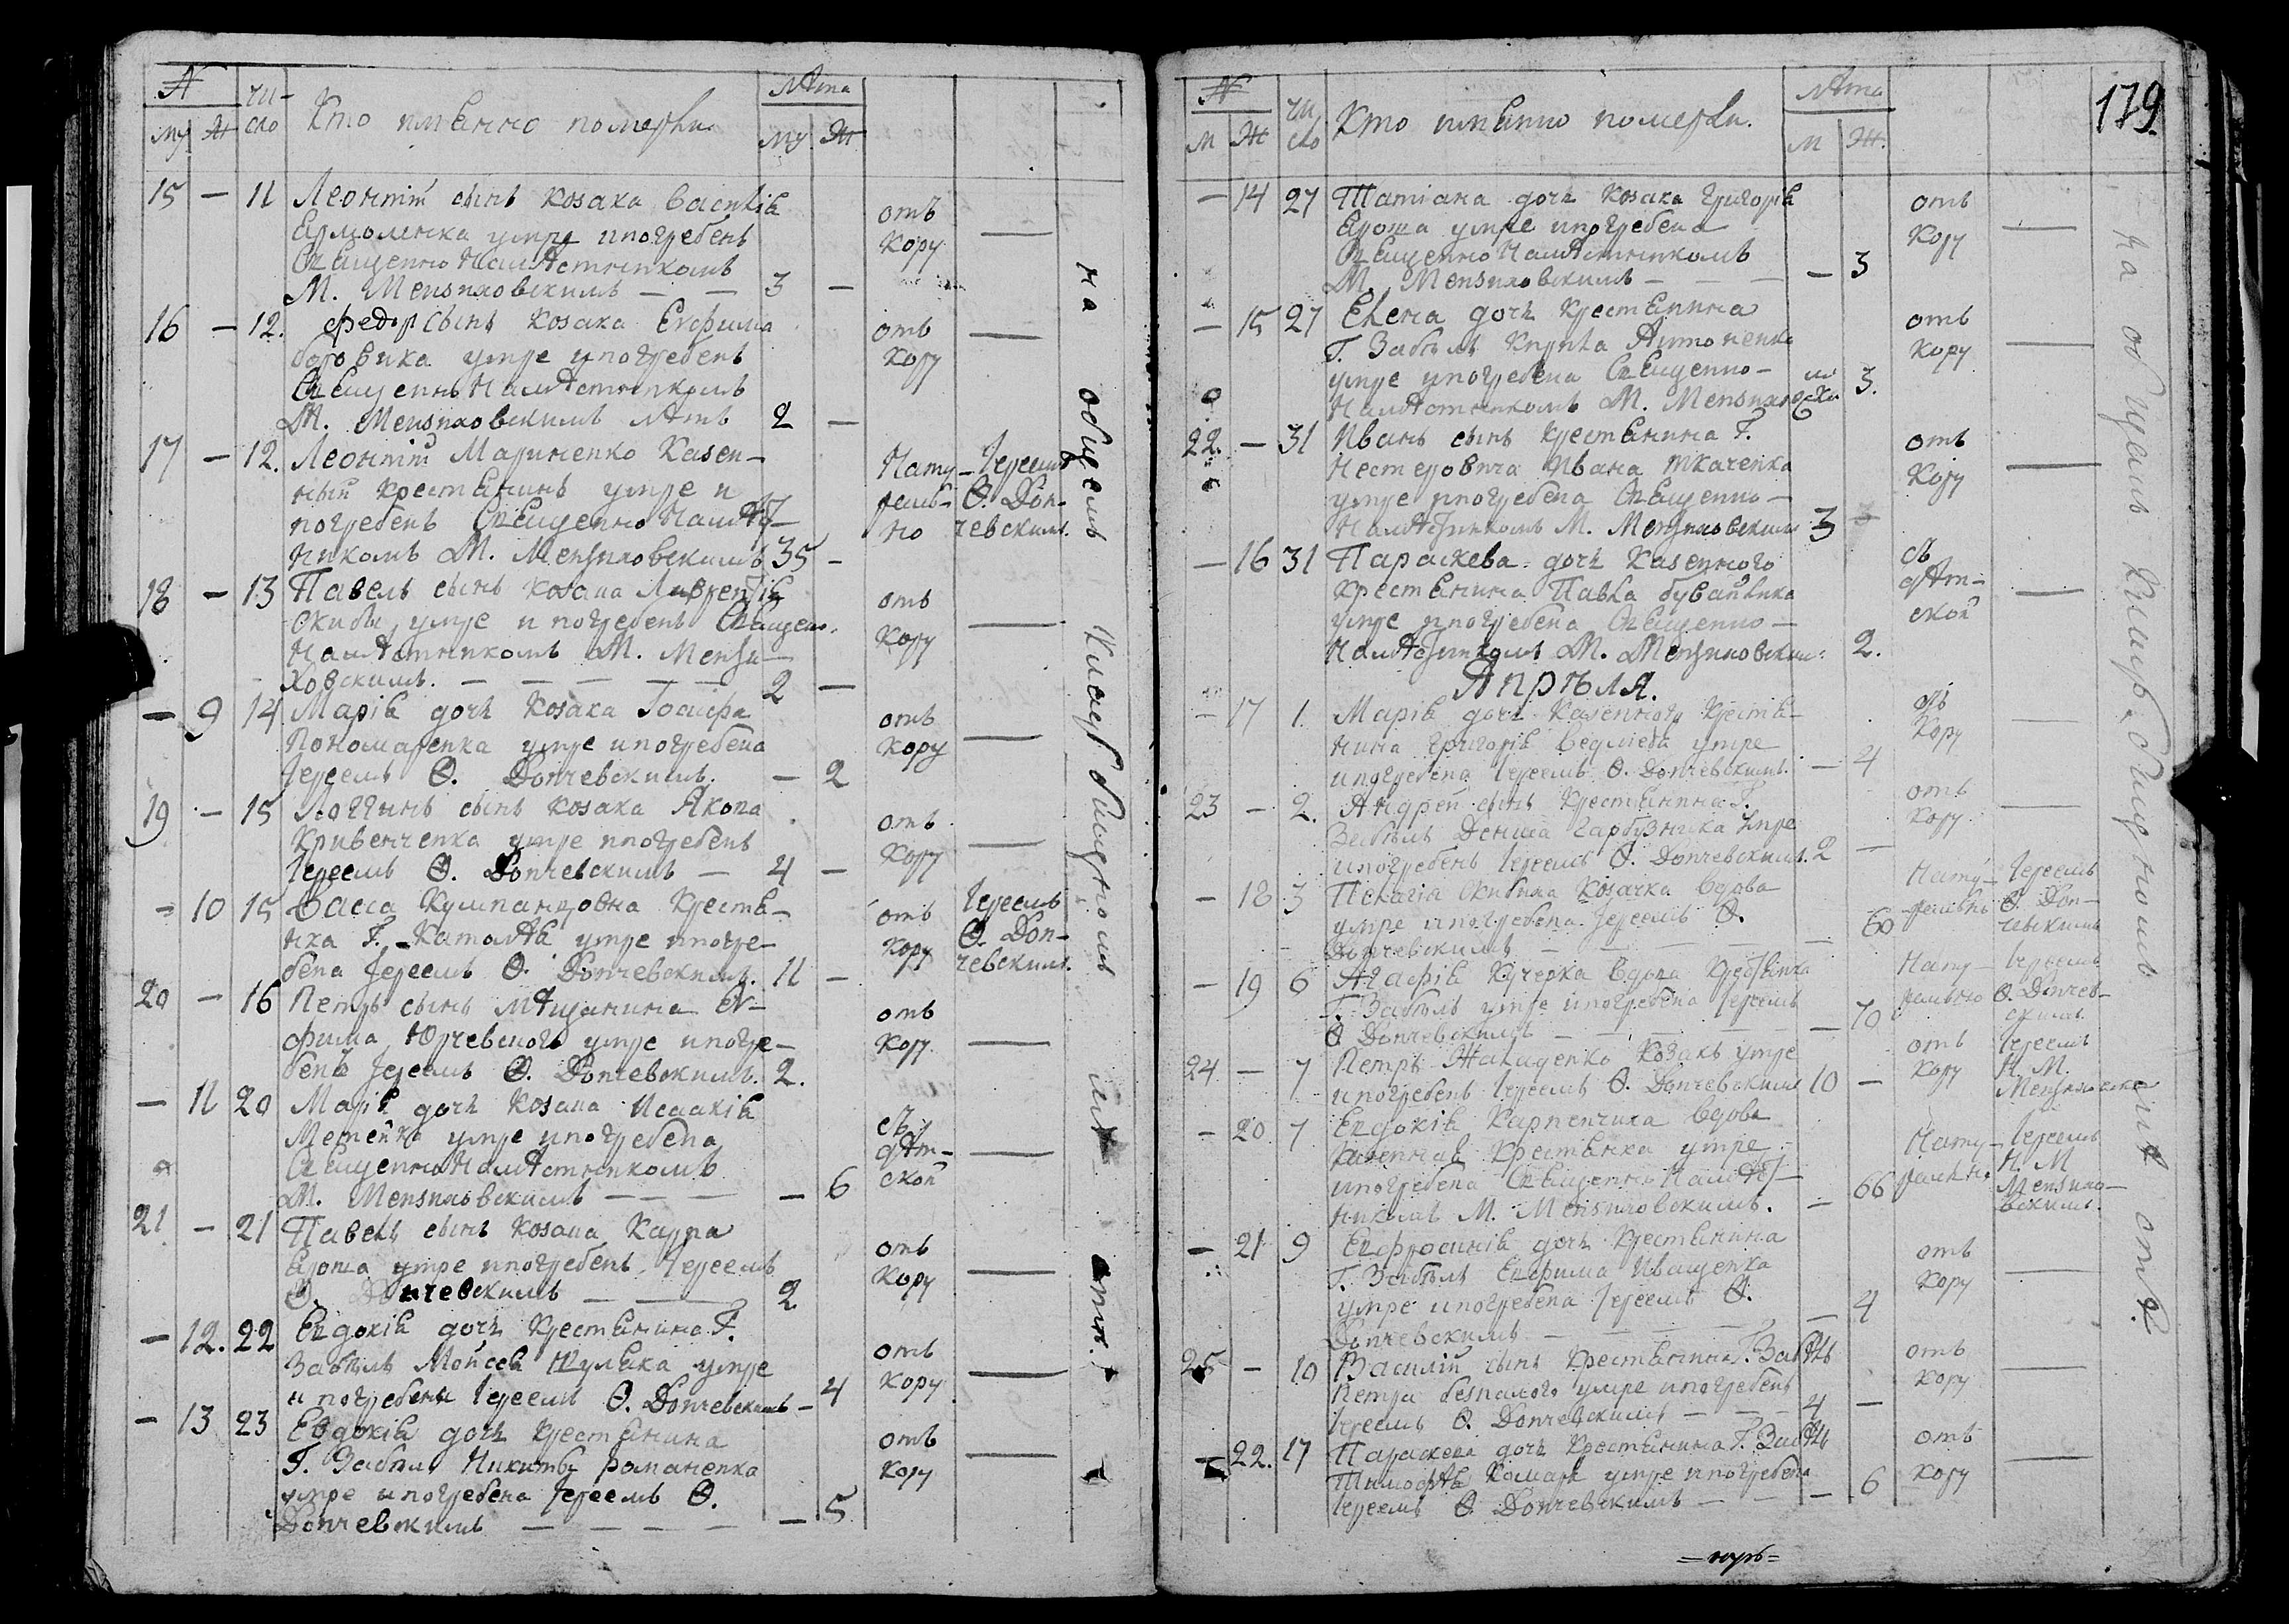 № чи- Лѣта
му ж сло Кто имянно померли. му ж
15 — 11 Леонтій сынъ козака Василія
Ермоленка умре и погребенъ
Священно Намѣстникомъ
М. Мензиховскимъ — — 3 —
отъ
кору —
16 — 12. Федоръ сынъ козака Евфима
боровика умре и погребенъ
Священно Намѣстникомъ
М. Мензиховскимъ лѣтъ 2 —
отъ
кору —
17 — 12. Леонтій Мариненко казен-
ный крестянинъ умре и
погребенъ Священно Намѣст-
никомъ М. Мензиховскимъ 35 -
Нату- Іереемъ
рель- Ѳ. Доп-
но чевскимъ.
18 — 13 Павелъ сынъ козака Лаврентія
Скибы, умре и погребенъ Священо-
Намѣстникомъ М. Мензи-
ховскимъ. — — — — — 2 —
отъ
кору —
— 9 14 Марія дочь козака Іосифа
Пономаренка умре и погребена
Іереемъ Ѳ. Допчевскимъ. — 2
отъ
кору —
19 — 15 Логгинъ сынъ козака Якова
Кривенченка умре и погребенъ
Іереемъ Ѳ. Допчевскимъ — 4 —
отъ
кору —
- 10 15 Васса крестя-
нка Г. умре и погре-
бена Іереемъ Ѳ. Допчевскимъ. 11 —
отъ Іереемъ
кору Ѳ. Доп-
чевскимъ.
20 — 16 Петръ сынъ мѣщанина Ев-
фима Юрчевского умре и погре-
бенъ Іереемъ Ѳ. Допчевскимъ. 2.
отъ
кору —
— 11 20 Марія дочь козака Исаакія
умре и погребена
Священно Намѣстникомъ
М. Мензиховскимъ — — — — 6
съ
дѣт- —
ской
21 — 21 Павелъ сынъ козака Карпа
Ероша умре и погребенъ Іереемъ
Ѳ. Допчевскимъ — — 2
отъ
кору —
— 12. 22 Евдокія дочь крестянина Г.
Забѣлъ Мойсея Шулыка умре
и погребена Іереемъ Ѳ. Допчевскимъ — 4
отъ
кору —
— 13 23 Евдокія дочь крестянина
Г. Забѣлъ Никиты романенка
умре и погребена Іереемъ Ѳ.
Допчевскимъ — — — — — 5
отъ
кору —
на общемъ
№ чи Лѣта
М Ж сло Кто имянно померли. М Ж.
179.
— 14 27 Татіана дочь козака Григорія
Ероша умре и погребена
Священно Намѣстникомъ
М. Мензиховскимъ — — — — 3
отъ
кору —
— 15 27 Елена дочь крестянина
Г. Забѣлъ Антоненка
умре и погребена Священно-
Намѣстникомъ М. Мензиховскимъ 3.
отъ
кору —
22. — 31 Иванъ сынъ крестянина Г.
Нестеровича Ивана ткаченка
умре и погребена Священно-
Намѣстникомъ М. Мензиховскимъ 3
отъ
кору —
— 16 31 Параскева дочь казенного
крестянина Павла
умре и погребена Священно-
Намѣстникомъ М. Мензиховским: 2.
съ
дѣт- —
ской
Апрѣля.
— 17 1. Марія дочь казенного крестя-
нина Григорія ведмедя умре
и погребена Іереемъ Ѳ. Допчевскимъ. — 4
отъ
кору —
23 — 2. Андрей сынъ крестянина Г.
Забѣлъ Дениса Гарбузника умре
и погребенъ Іереемъ Ѳ. Допчевскимъ. 2 —
отъ
кору —
— 18 3 Пелагія Скибина козачка вдова
умре и погребена Іереемъ Ѳ.
Допчевскимъ — — — — — 60
Нату- Іереемъ
рельно Ѳ. Доп-
чевскимъ
— 19 6 Агафія Кучерка вдова крестянка
Г. Забѣлъ умре и погребена Іереемъ
Ѳ Допчевскимъ — — — — — 70
Нату- Іереемъ
рельно Ѳ. Допчев-
скимъ
24 — 7 Петръ козакъ умре
и погребенъ Іереемъ Ѳ. Допчевскимъ 10 —
отъ Іереемъ
кору Н. М.
— 20 7 Евдокія Карпенчиха вдова
казенная крестянка умре
и погребена Священно Намѣст-
никомъ М. Мензиховскимъ. — 66
Нату- Іереемъ
рельно Н. М
Мензихо-
вскимъ.
— 21 9 Евфросинія дочь крестянина
Г. Забѣлъ Евфима Иващенка
умре и погребена Іереемъ Ѳ.
Допчевскимъ — — — — — 4
отъ
кору —
25 — 10 Василій сынъ крестянина Г. Забѣлъ
Петра безпалого умре и погребенъ
Іереемъ Ѳ. Допчевскимъ — — — 4 —
отъ
кору —
— 22. 17 Параскева дочь крестянина Г. Забѣлъ
Тимофѣя Комаря умре и погребена
Іереемъ Ѳ Допчевскимъ — — — 6
отъ
кору —
на общемъ